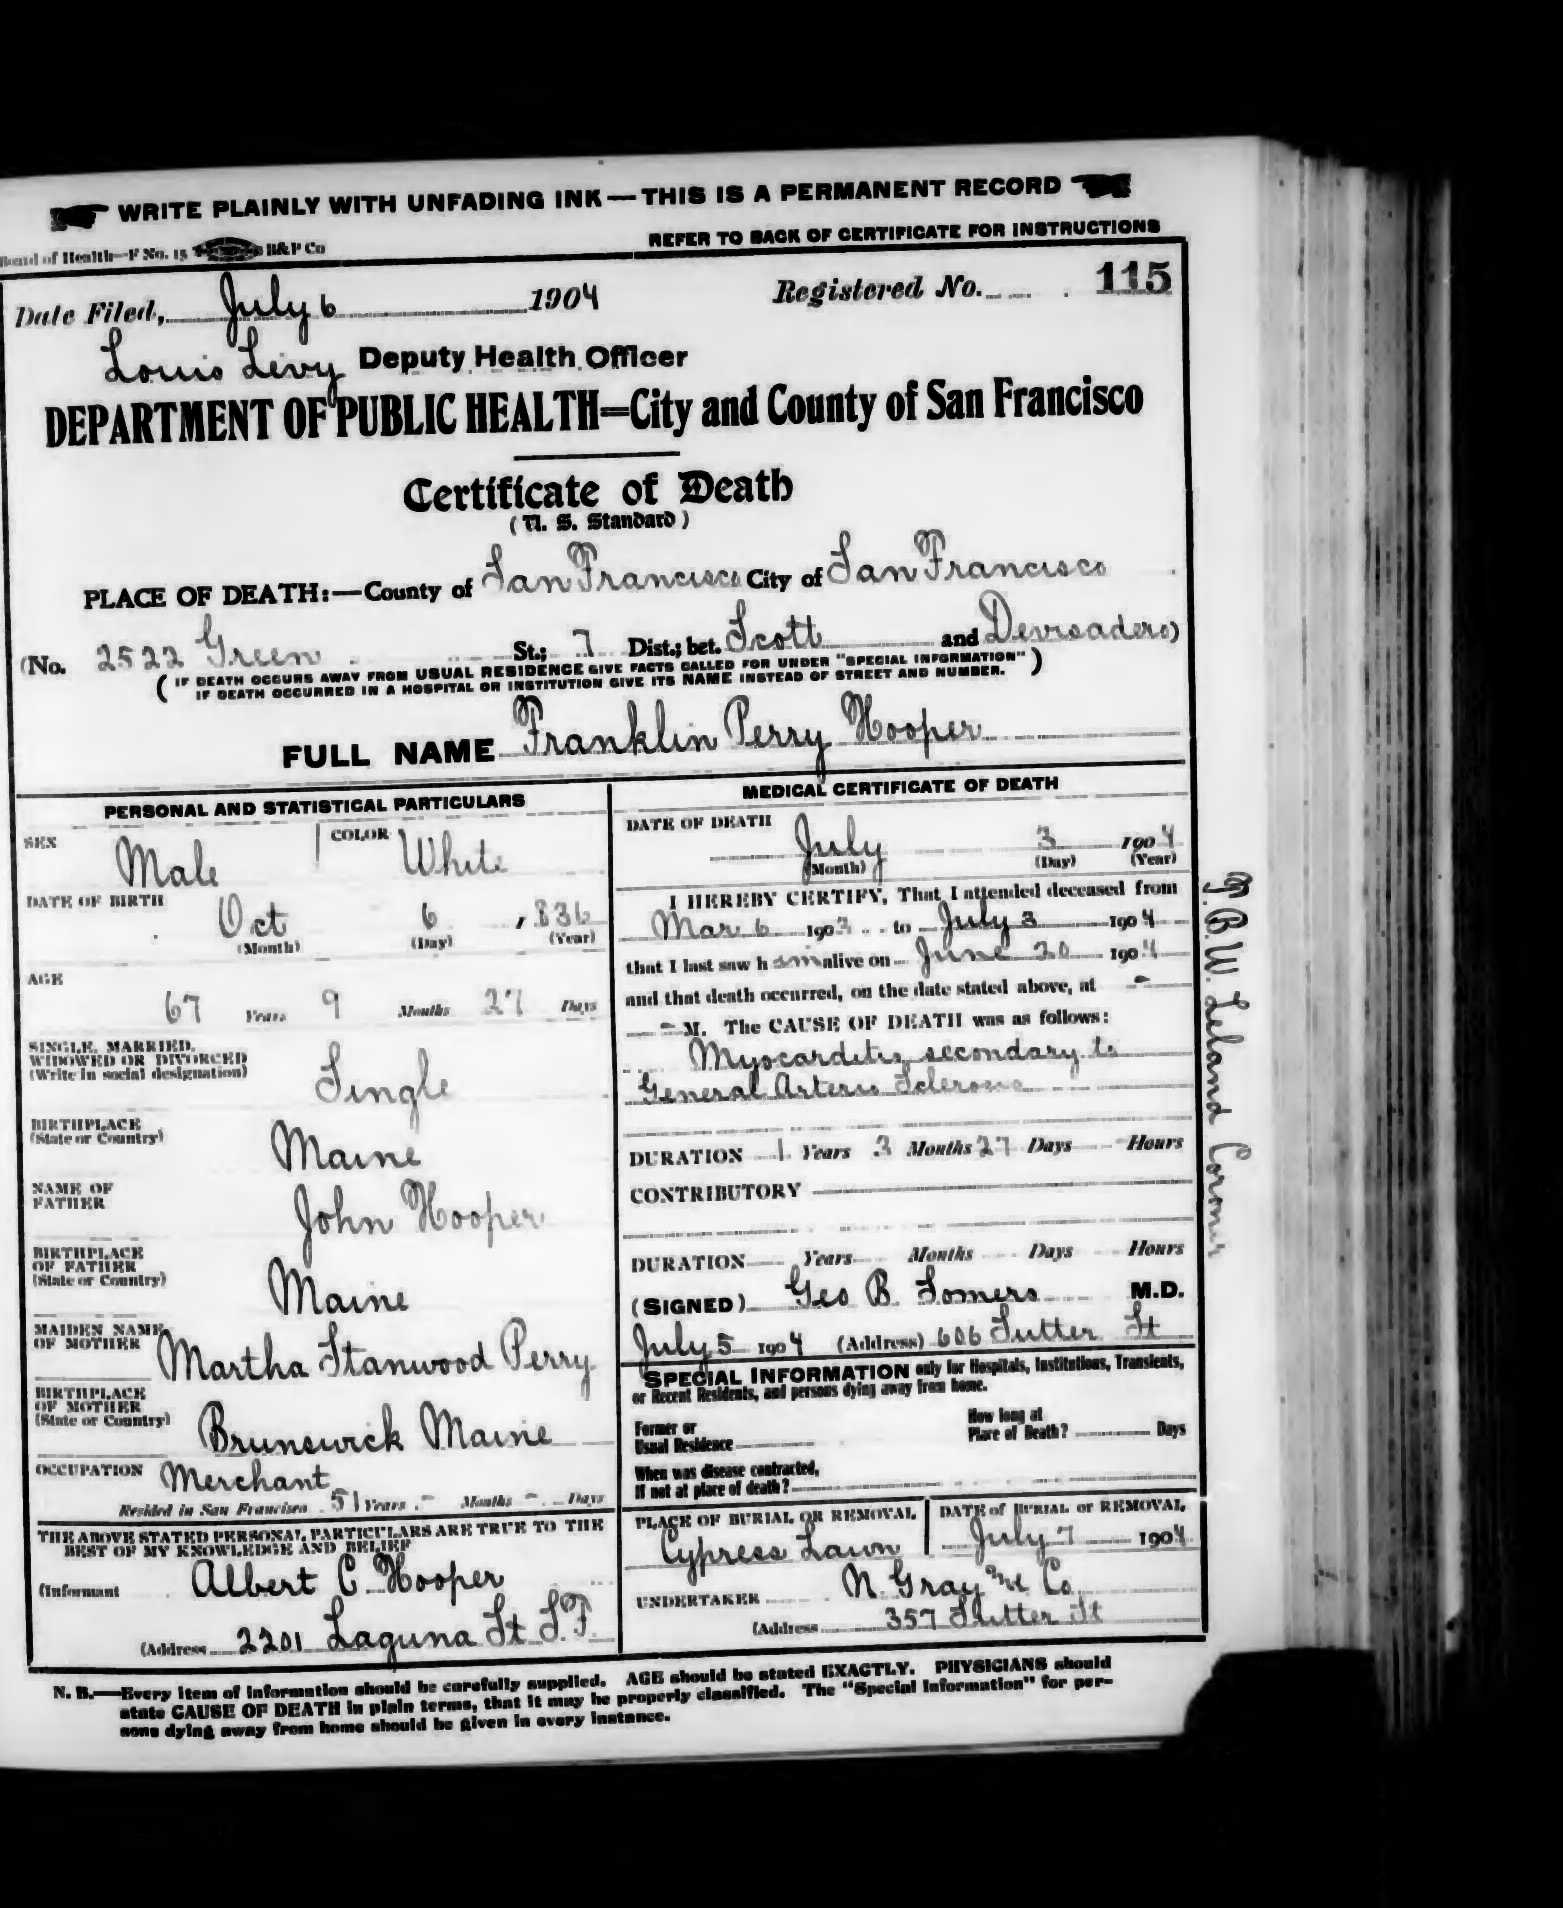 WRITE PLAINLY WITH UNFADING INK — THIS IS A PERMANENT RECORD
Board of Health—F No. 15 B&P Co
REFER TO BACK OF CERTIFICATE FOR INSTRUCTIONS
Date Filed, July 6 1904 Registered No. 115
Louis Levy Deputy Health Officer
DEPARTMENT OF PUBLIC HEALTH=City and County of San Francisco
Certificate of Death
(U. S. Standard)
PLACE OF DEATH:—County of San Francisco City of San Francisco
(No. 2522 Green St.; 7 Dist.; bet. Scott and Devisadero)
(IF DEATH OCCURS AWAY FROM USUAL RESIDENCE GIVE FACTS CALLED FOR UNDER "SPECIAL INFORMATION"
IF DEATH OCCURRED IN A HOSPITAL OR INSTITUTION GIVE ITS NAME INSTEAD OF STREET AND NUMBER.)
FULL NAME Franklin Perry Hooper
PERSONAL AND STATISTICAL PARTICULARS
SEX Male COLOR White
DATE OF BIRTH
Oct 6, 836
(Month) (Day) (Year)
AGE
67 Years 9 Months 27 Days
SINGLE, MARRIED,
WIDOWED OR DIVORCED
(Write in social designation)
Single
BIRTHPLACE
(State or Country)
Maine
NAME OF
FATHER
John Hooper
BIRTHPLACE
OF FATHER
(State or Country)
Maine
MAIDEN NAME
OF MOTHER
Martha Stanwood Perry
BIRTHPLACE
OF MOTHER
(State or Country)
Brunswick Maine
OCCUPATION Merchant
Resided in San Francisco 51 Years - Months - Days
THE ABOVE STATED PERSONAL PARTICULARS ARE TRUE TO THE
BEST OF MY KNOWLEDGE AND BELIEF
(Informant Albert C Hooper
(Address 2201 Laguna St S.F.
MEDICAL CERTIFICATE OF DEATH
DATE OF DEATH
July 3 1904
(Month) (Day) (Year)
I HEREBY CERTIFY, That I attended deceased from
Mar 6 1903 to July 3 1904
that I last saw h im alive on June 20 1904
and that death occurred, on the date stated above, at -
- M. The CAUSE OF DEATH was as follows:
Myocarditis secondary to
General Arterio Sclerosis
DURATION 1 Years 3 Months 27 Days Hours
CONTRIBUTORY
DURATION Years Months Days Hours
(SIGNED) Geo B. Somers M.D.
July 5 1904 (Address) 606 Sutter St
SPECIAL INFORMATION only for Hospitals, Institutions, Transients,
or Recent Residents, and persons dying away from home.
Former or
Usual Residence
How long at
Place of Death? Days
When was disease contracted,
If not at place of death?
PLACE OF BURIAL OR REMOVAL
Cypress Lawn
DATE of BURIAL or REMOVAL
July 7 1904
UNDERTAKER N. Gray and Co
(Address 357 Sutter St
N. B.—Every item of information should be carefully supplied. AGE should be stated EXACTLY. PHYSICIANS should
state CAUSE OF DEATH in plain terms, that it may be properly classified. The "Special Information" for per-
sons dying away from home should be given in every instance.
T.B.W. Leland Coroner